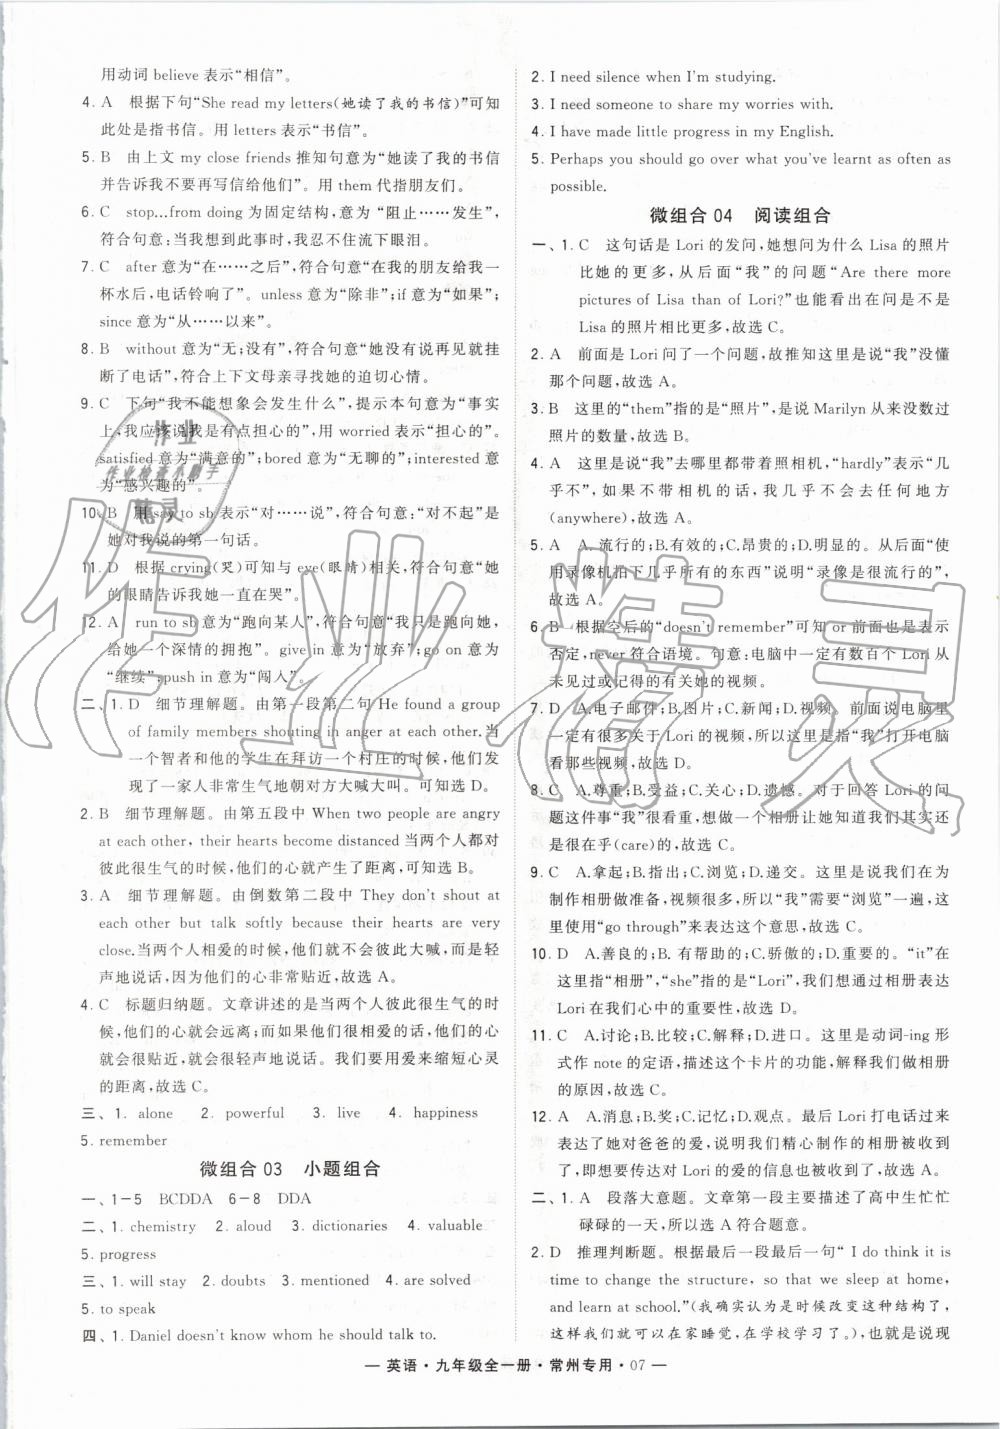 用动词 believe 表示“相信”。
4. A 根据下句“She read my letters(她读了我的书信)”可知
此处是指书信。用 letters 表示“书信”。
5. B 由上文 my close friends 推知句意为“她读了我的书信
并告诉我不要再写信给他们”。用 them 代指朋友们。
6. C stop...from doing 为固定结构,意为“阻止……发生”,
符合句意:当我想到此事时,我忍不住流下眼泪。
7. C after 意为“在……之后”,符合句意“在我的朋友给我一
杯水后,电话铃响了”。unless 意为“除非”;if 意为“如果”;
since 意为“从……以来”。
8. B without 意为“无;没有”,符合句意“她没有说再见就挂
断了电话”。符合上下文母亲寻找她的迫切心情。
9. C 下句“我不能想象会发生什么”,提示本句意为“事实
上,我应该说我是有点担心的”。用 worried 表示“担心的”。
satisfied 意为“满意的”;bored 意为“无聊的”;interested 意
为“感兴趣的”。
10. B 用 say to sb 表示“对……说”,符合句意:“对不起”是
她对我说的第一句话。
11. D 根据 crying(哭)可知与 eye(眼睛)相关,符合句意“她
的眼睛告诉我她一直在哭”。
12. A run to sb 意为“跑向某人”,符合句意“我只是跑向她,
给她一个深情的拥抱”。give in 意为“放弃”;go on 意为
“继续”;push in 意为“闯入”。
二、1. D 细节理解题。由第一段第二句 He found a group
of family members shouting in anger at each other.当
一个智者和他的学生在拜访一个村庄的时候,他们发
现了一家人非常生气地朝对方大喊大叫。可知选 D。
2. B 细节理解题。由第五段中 When two people are angry
at each other, their hearts become distanced 当两个人都对
彼此很生气的时候,他们的心就产生了距离,可知选 B。
3. A 细节理解题。由倒数第二段中 They don't shout at
each other but talk softly because their hearts are very
close.当两个人相爱的时候,他们就不会大喊,而是轻
声地说话,因为他们的心非常贴近,故选 A。
4. C 标题归纳题。文章讲述的是当两个人彼此很生气的时
候,他们的心就会远离;而如果他们很相爱的话,他们的心
就会很贴近,就会很轻声地说话。我们要用爱来缩短心灵
的距离,故选 C。
三、1. alone 2. powerful 3. live 4. happiness
5. remember
微组合 03 小题组合
一、1-5 BCDDA 6-8 DDA
二、1. chemistry 2. aloud 3. dictionaries 4. valuable
5. progress
三、1. will stay 2. doubts 3. mentioned 4. are solved
5. to speak
四、1. Daniel doesn't know whom he should talk to.
2. I need silence when I'm studying.
3. I need someone to share my worries with.
4. I have made little progress in my English.
5. Perhaps you should go over what you've learnt as often as
possible.
微组合 04 阅读组合
一、1. C 这句话是 Lori 的发问,她想问为什么 Lisa 的照片
比她的更多,从后面“我”的问题“Are there more
pictures of Lisa than of Lori?”也能看出在问是不是
Lisa 的照片相比更多,故选 C。
2. A 前面是 Lori 问了一个问题,故推知这里是说“我”没懂
那个问题,故选 A。
3. B 这里的“them”指的是“照片”,是说 Marilyn 从来没数过
照片的数量,故选 B。
4. A 这里是说“我”去哪里都带着照相机,“hardly”表示“几
乎不”,如果不带相机的话,我几乎不会去任何地方
(anywhere),故选 A。
5. A A.流行的;B.有效的;C.昂贵的;D.明显的。从后面“使
用录像机拍下几乎所有的东西”说明“录像是很流行的”,
故选 A。
6. B 根据空后的“doesn't remember”可知 or 前面也是表示
否定,never 符合语境。句意:电脑中一定有数百个 Lori 从
未见过或记得的有关她的视频。
7. D A.电子邮件;B.图片;C.新闻;D.视频。前面说电脑里
一定有很多关于 Lori 的视频,所以这里是指“我”打开电脑
看那些视频,故选 D。
8. C A.尊重;B.受益;C.关心;D.遗憾。对于回答 Lori 的问
题这件事“我”很看重,想要做一个相册让她知道我们其实还
是很在乎(care)的。故选 C。
9. C A.拿起;B.指出;C.浏览;D.递交。这里是说我们在为
制作相册做准备,视频很多,所以“我”需要“浏览”一遍,这里
使用“go through”来表达这个意思,故选 C。
10. D A.善良的;B.有帮助的;C.骄傲的;D.重要的。“it”在
这里指“相册”,“she”指的是“Lori”,我们想通过相册表达
Lori 在我们心中的重要性,故选 D。
11. C A.讨论;B.比较;C.解释;D.进口。这里是动词-ing 形
式作 note 的定语,描述这个卡片的功能,解释我们做相册
的原因,故选 C。
12. A A.消息;B.奖;C.记忆;D.观点。最后 Lori 打电话过来
表达了她对爸爸的爱,说明我们精心制作的相册被收到
了,即想要传达对 Lori 的爱的信息也被收到,故选 A。
二、1. A 段落大意题。文章第一段主要描述了高中生忙忙
碌碌的一天,所以选 A 符合题意。
2. D 推理判断题。根据最后一段最后一句“I do think it is
time to change the structure, so that we sleep at home,
and learn at school.”(我确实认为是时候改变这种结构了,
这样我们就可以在家睡觉,在学校学习了。),也就是说现
— 英语·九年级全一册·常州专用·07 —
作业
作业检查小助手
精灵
作业精灵